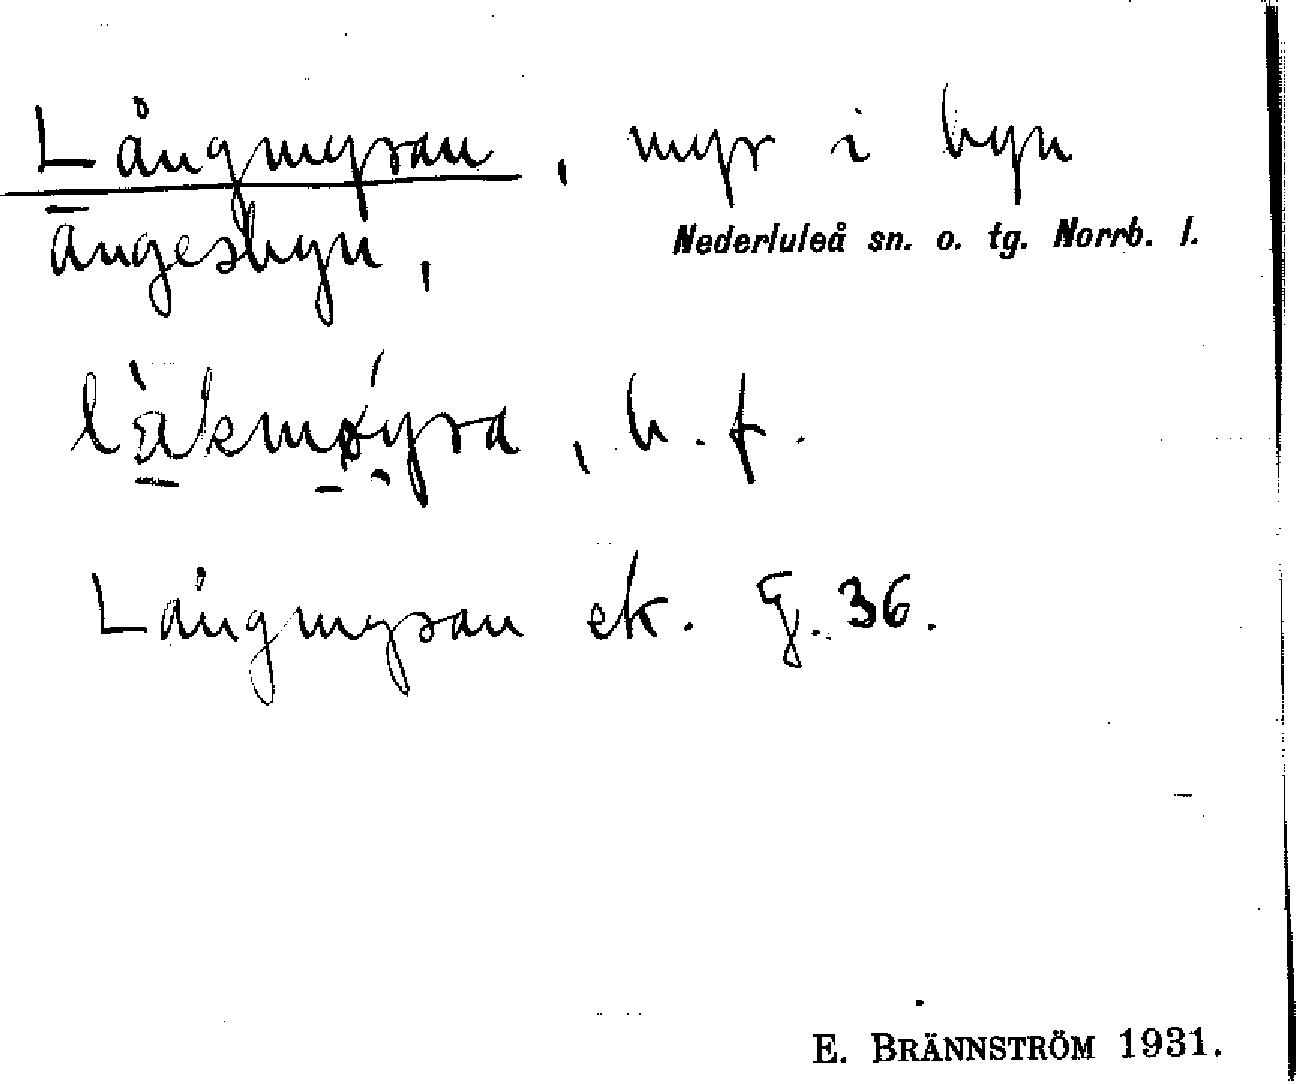 Långmyran, myr i byn
Ängesbyn, Nederluleå sn. o. tg. Norrb. l.
b. f.
Långmyran ek. g. 36.
E. BRÄNNSTRÖM 1931.